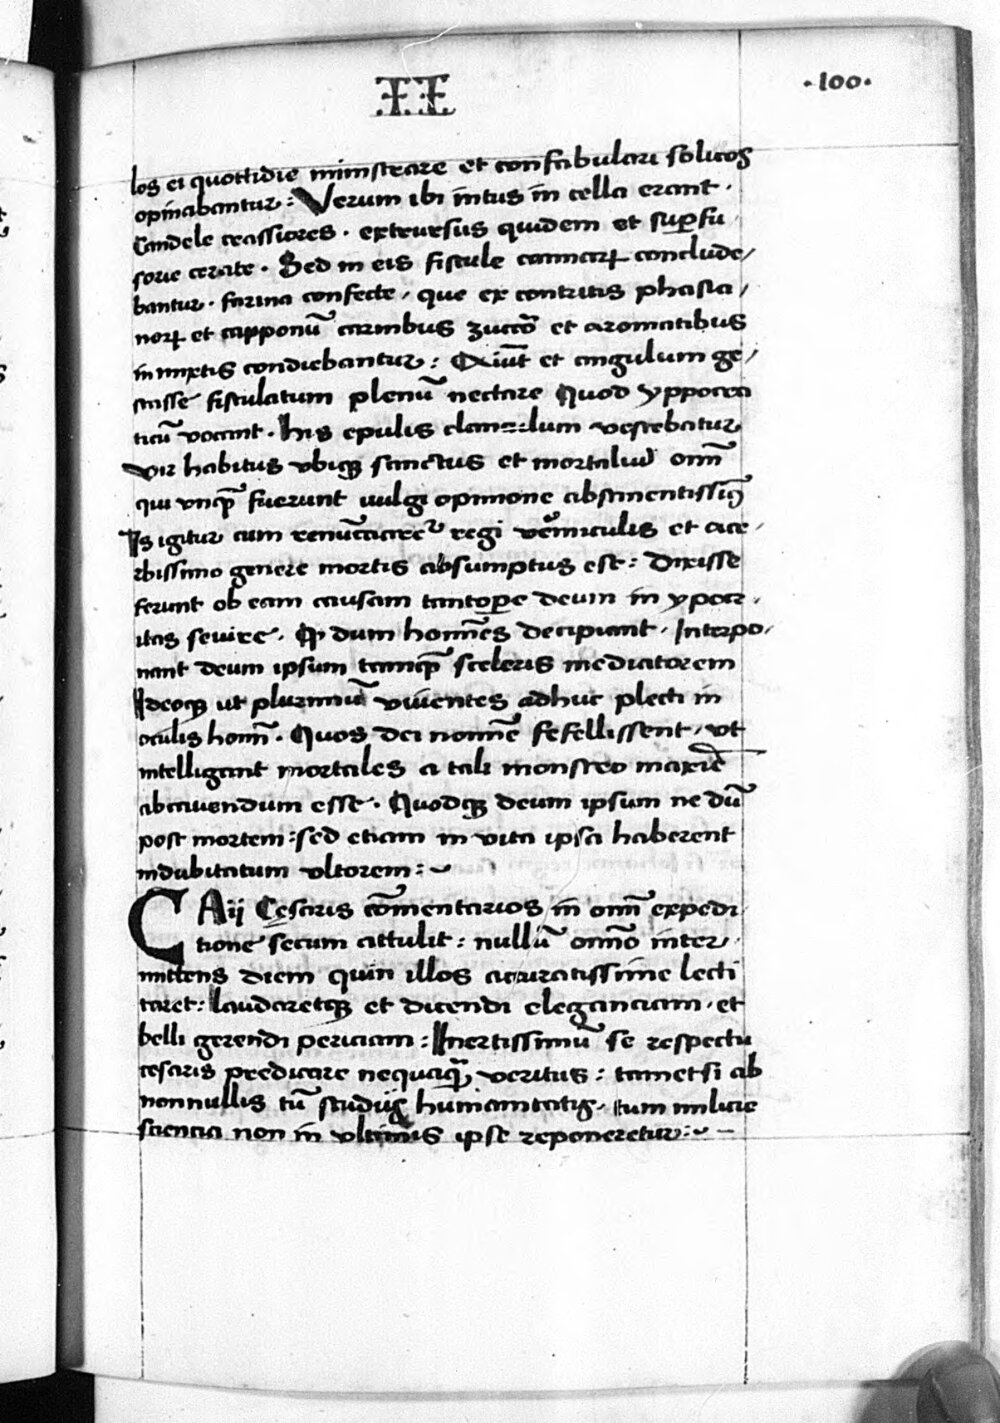 II
·100·
los ei quottidie ministrare et confabulari solitos
opinabantur: Verum ibi intus in cella erant·
Candele crassiores· extrersus quidem et suꝑfu
sorie cerate· Sed in eis fistule cannarꝝ conclude/
bantur· farina confecte/ que ex contritis phasia/
norꝝ et capponū carnibus zuccō et aromatibus
in mixtis condiebantur: Aiūt et cingulum ge/
stasse fistulatum plenū nectare Quod yppocra
ticū vocant· his epulis clanculum vescebatur
vir habitus ubiqꝫ sanctus et mortaliū oīm
qui unqꝫ fuerunt uulgi opinione abstinentissimꝰ
Is igitur cum renūciaret regi vermiculis et ace/
rbissimo genere mortis absumptus est: Dixisse
ferunt ob eam causam tantopere deum in ypocr·
itas seuire· Qꝫ dum homīes decipiant· Interpo/
nant deum ipsum tamqꝫ sceleris mediatorem
Ideoqꝫ ut plurimū viuentes adhuc plecti in
oculis homī· Quos dei nomīe fefellissent/ ut
intelligant mortales a tali monstro maxīe
abcauendum esse· Quodqꝫ deum ipsum ne dū
post mortem: sed etiam in vita ipsa haberent
indubitatum ultorem:~
CAij Cęsaris cōmentarios in omī expedi
tione secum attulit: nullū omīo inter·
mittens diem quin illos accuratissime lecti
taret: laudaretqꝫ et dicendi eleganciam· et
belli gerendi periciam: Inertissimū se respectu
cesaris predicare nequaqꝫ veritus: tametsi ab
nonnullis tū studijs humanitatis· tum milicie
sciencia non in ultimis ipse reponeretur:~ —